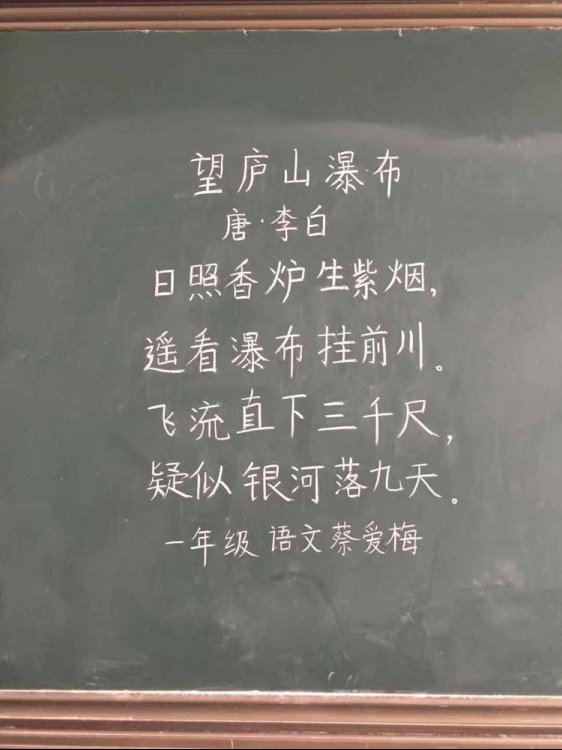 望庐山瀑布
唐·李白
日照香炉生紫烟,
遥看瀑布挂前川。
飞流直下三千尺,
疑似银河落九天。
一年级语文蔡爱梅